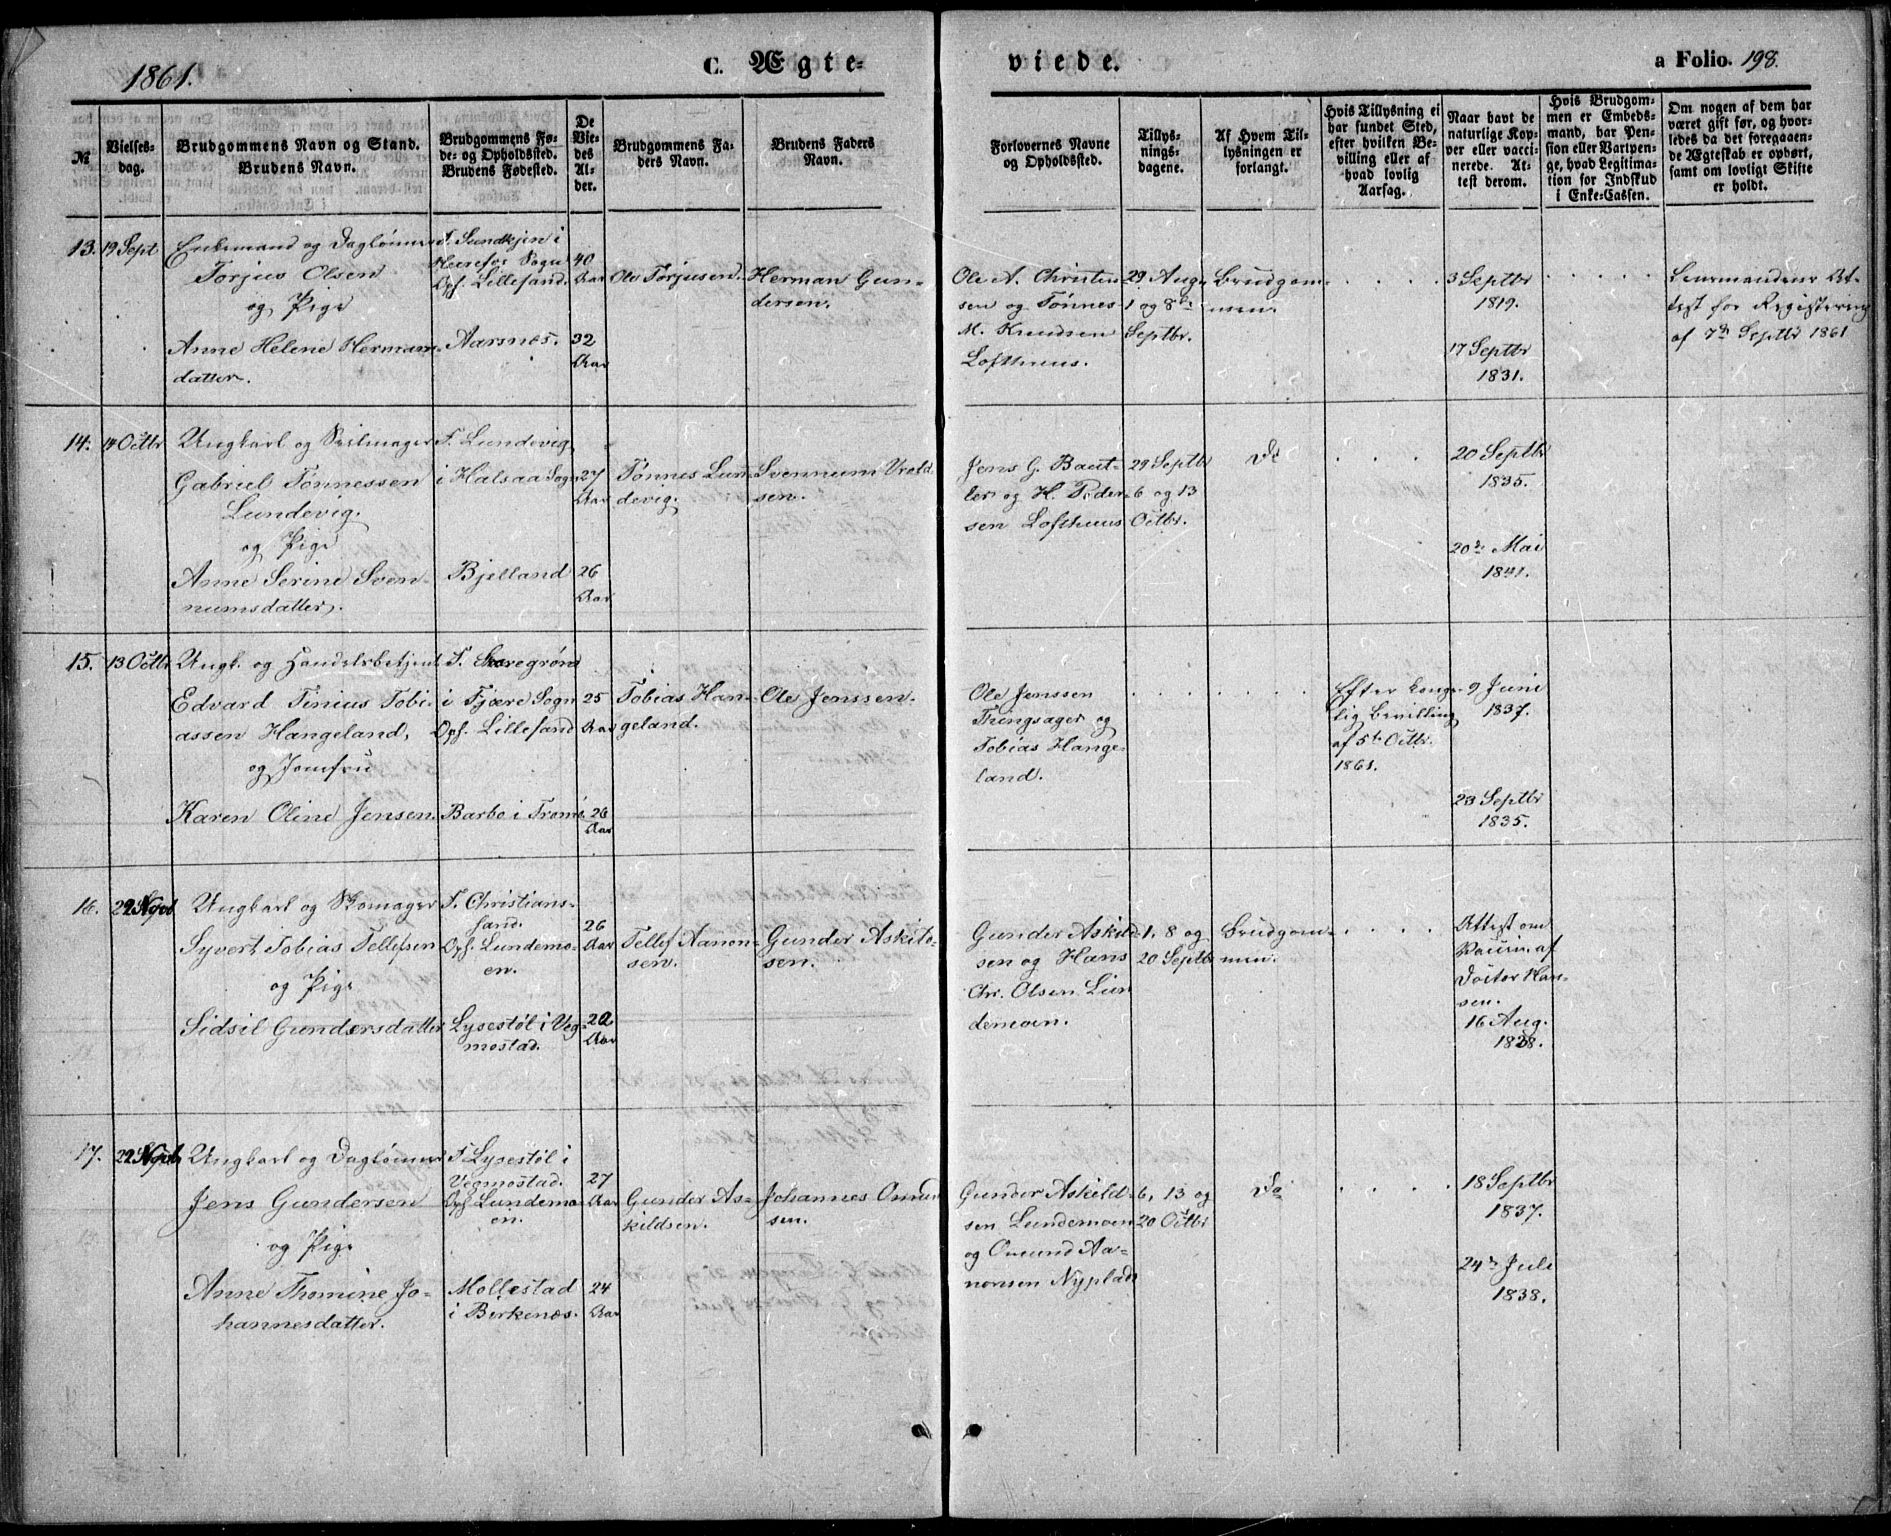 1861.
C. Ægte-
viede.
a Folio. 198.
№
Vielses-
dag.
Brudgommens Navn og Stand.
Brudens Navn.
Brudgommens Fø-
de- og Opholdssted.
Brudens Fødested.
De
Vie-
des
Al-
der.
Brudgommens Fa-
ders Navn.
Brudens Faders
Navn.
Forlovernes Navne
og Opholdssted.
Tillys-
nings-
dagene.
Af Hvem Til-
lysningen er
forlangt.
Hvis Tillysning ei
har fundet Sted,
efter hvilken Be-
villing eller af
hvad lovlig
Aarsag.
Naar havt de
naturlige Kop-
per eller vacci-
nerede. At-
test derom.
Hvis Brudgom-
men er Embeds-
mand, har Pen-
sion eller Vartpen-
ge, hvad Legitima-
tion for Indskud
i Enke-Cassen.
Om nogen af dem har
været gift før, og hvor-
ledes da det foregaaen-
de Ægteskab er ophørt,
samt om lovligt Skifte
er holdt.
13. 19 Sept
Enkemand og Daglønner
Torjus Olsen
og Pige
Anne Helene Herman-
datter.
F.
i
Heerefos Sogn
Oph. Lillesand.
Aarsnes.
40
Aar
32
Aar
Ole Torjusen.
Herman Gun-
dersen.
Ole A. Christen-
sen og Tønnes
M. Knudsen
Lofthuus.
29 Aug.
1 og 8de
Septbr.
Brudgom-
men.
3 Septbr
1819.
17 Septbr
1831.
Lensmandens At-
test for Registering
af 7de Septbr 1861
14. 14 Octbr
Ungkarl og Seilmager
Gabriel Tønnessen
Lundevig.
og Pige
Anne Serine Sven-
numsdatter.
F. Lundevig
i Halsaa Sogn
Bjelland
27
Aar
26
Aar
Tønnes Lun-
devig.
Svennum
sen.
Jens G. Baut-
ler og H. Peder-
sen Lofthuus
29 Septbr
6 og 13
Octbr.
Do
20 Septbr
1835.
20de Mai
1841.
15. 13 Octbr
Ungk. og Handelsbetjent
Edvard Tinius Tobi-
assen Hangeland,
og Jomfru
Karen Oline Jensen.
F.
i Fjære Sogn
Oph. Lillesand
Barbo i Tromø
25
Aar
26
Aar
Tobias Han-
geland.
Ole Jenssen.
Ole Jenssen
Thingsager og
Tobias Hange-
land.
Efter konge-
lig Bevilling
af 5te Octbr.
1861.
9 Juni
1837.
23 Septbr
1835.
16.
Ungkarl og Skomager
Syvert Tobias Tellefsen
og Pige
Sidsil Gundersdatter
F. Christians-
sand.
Oph. Lundemo-
en.
Lysestøl i Veg-
mostad.
26
Aar
Aar
Tellef Aanon-
sen.
Gunder Askild-
sen.
Gunder Askild-
sen og Hans
Chr. Olsen Lun
demoen.
1, 8 og
20 Septbr
Brudgom-
men.
Attest om
Vaccin. af
Doctor Han-
sen.
16 Aug.
1838.
17.
Ungkarl og Daglønner
Jens Gundersen
og Pige
Anne Thomine Jo-
hannesdatter.
F. Lysestøl i
Vegmostad.
Oph. Lundemo-
en.
Mollestad
i Birkenæs.
27
Aar
24
Aar
Gunder As-
kildsen.
Johannes Omun
sen.
Gunder Askild-
sen Lundemoen
og Omund Aa-
nonsen Nyplads
6, 13 og
20 Octbr
Do
18 Septbr
1837.
24de Juli
1838.